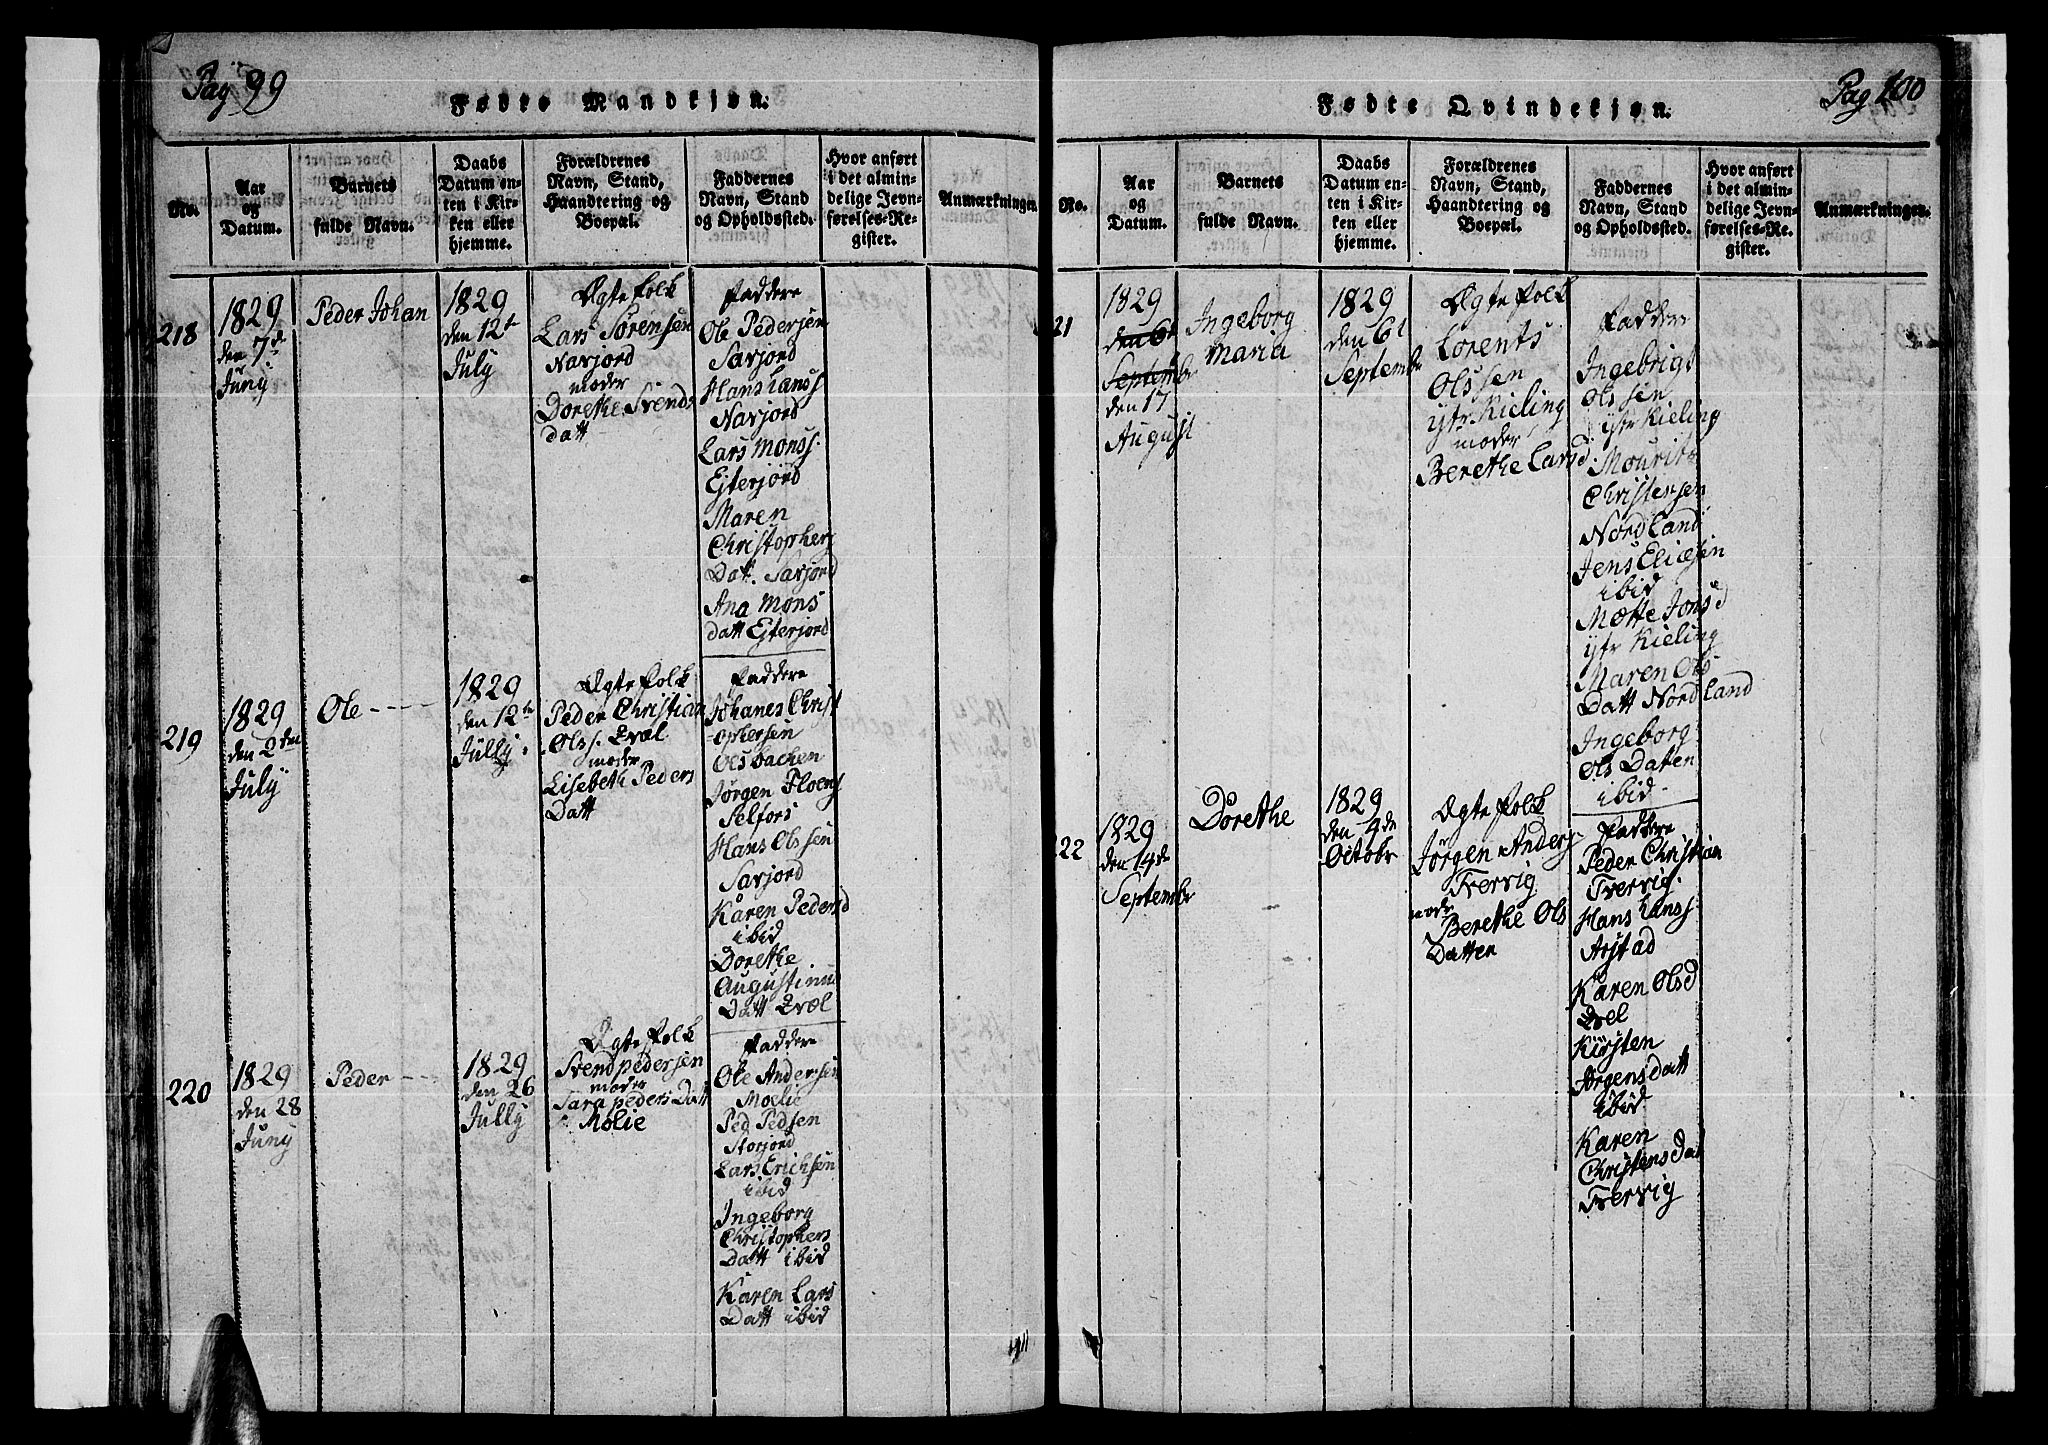 Pag 99
Fødte Mandkjøn.
No.
Aar
og
Datum.
Barnets
fulde Navn.
Daabs
Datum en-
ten i Kir-
ken eller
hjemme.
Forældrenes
Navn, Stand,
Haandtering og
Boepæl.
Faddernes
Navn, Stand
og Opholdssted.
Hvor anført
i det almin-
delige Jevn-
førelses-Re-
gister.
Anmærkninger.
218
1829
den 7de
Junÿ
Peder Johan
1829
den 12te
July
Ægte Folk
Lars Sörensen
Navjord
moder
Dorethe Svends
datt
Faddere
Ole Pedersen
Savjord
Hans Lanss
Navjord
Lars Monss.
Ejterjord
Maren
Christophers
Datt. Savjord
Ana Mons
datt Ejterjord
219
1829
den 2den
Julÿ
Ole
1829
den 12te
Jullÿ
Ægte Folk
Peder Christian
Olss. Evæl
moder
Lisebeth Peders
Datt
Faddere
Johanes Christ
ophersen
Olsbachen
Jörgen Floens
Selfors
Hans Olssen
Savjord
Karen Pedersd
ibid
Dorethe
Augustinus
Datt Evæl
220
1829
den 28
Junÿ
Peder
1829
den 26
Jullÿ
Ægte Folk
Svend pedersen
moder
Sara peders Datt
Molie
Faddere
Ole Andersen
Moelie
Ped Pedsen
Storjord
Lars Erichsen
ibid
Ingeborg
Christophers
Datt ibid
Karen Lars
Datt ibid
Pag 100
Fødte Qvindekjøn.
No.
Aar
og
Datum.
Barnets
fulde Navn.
Daabs
Datum en-
ten i Kir-
ken eller
hjemme.
Forældrenes
Navn, Stand,
Haandtering og
Boepæl.
Faddernes
Navn, Stand
og Opholdssted.
Hvor anført
i det almin-
delige Jevn-
førelses-Re-
gister.
Anmærkninger.
21
1829
den 6t
Septembr
den 17
August
Ingeborg
Maria
1829
den 6t
Septembr
Ægte Folk
Lorents
Olssen
ytr Kieling
moder
Berethe Larsd.
Faddere
Ingebrigt
Olssen
ytr Kieling
Mourits
Christensen
Nordland
Jens Eliæsen
ibid
Mætte Jonsd
ytr Kieling
Maren Ols
Datt Nordland
Ingeborg
Ols Datten
ibid
222
1829
den 14de
Septembr
Dorethe
1829
den 4de
Octobr
Ægte Folk
Jörgen Anders
Tvervig
mode
Berethe Ols
Datten
Faddere
Peder Christian
Tvervig.
Hans Hanss
Arstad
Karen Olsd
Evel
Kirsten
Jørgensdatt
ibid
Karen
Christens Dat
Tvervig